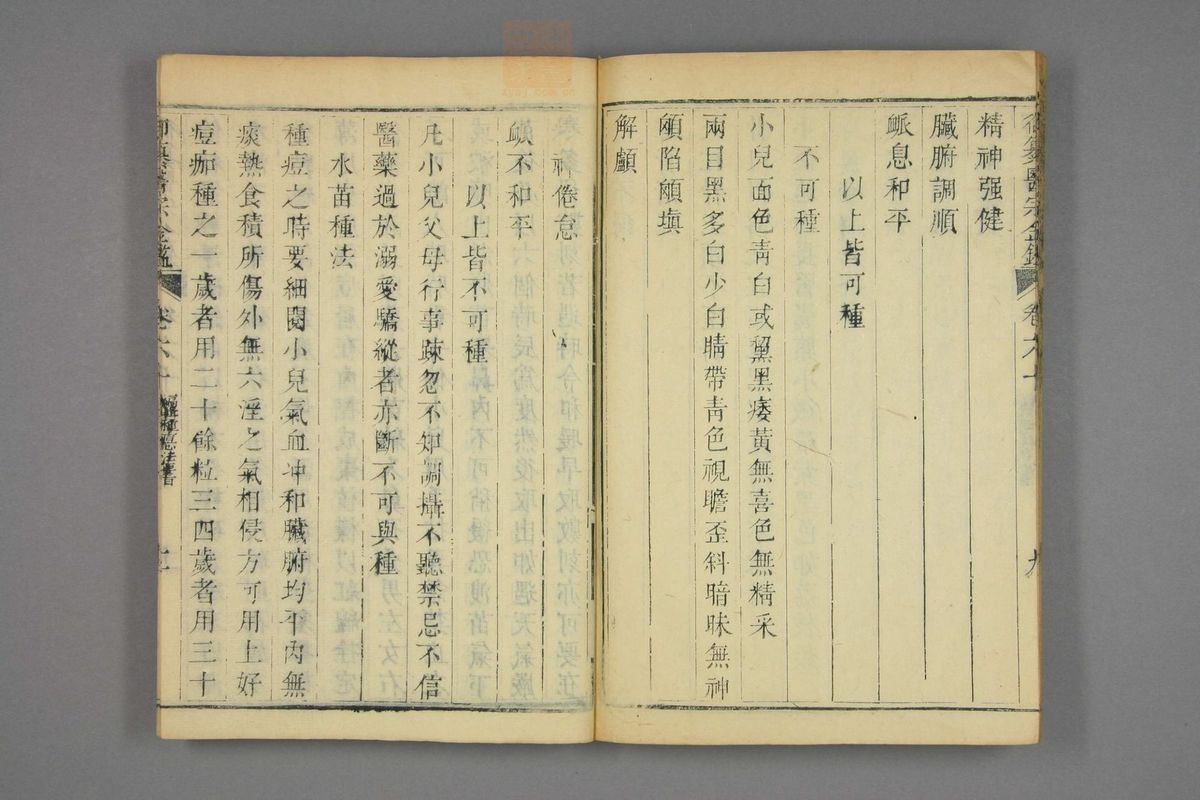 精神强健
臟腑調順
脈息和平
以上皆可種
不可種
小兒面色青白或黧黑痿黃無喜色無精采
兩目黑多白少白睛帶青色視瞻歪斜暗昧無神
顖陷顖塡
解顱
神倦怠
不和平
以上皆不可種
凡小兒父母行事疎忽不知調攝不聽禁忌不信
醫藥過於溺愛驕縱者亦斷不可與種
水苗種法
種痘之時要細閱小兒氣血冲和臟腑均平內無
痰熱食積所傷外無六淫之氣相侵方可用上好
痘痂種之一歲者用二十餘粒三四歲者用三十